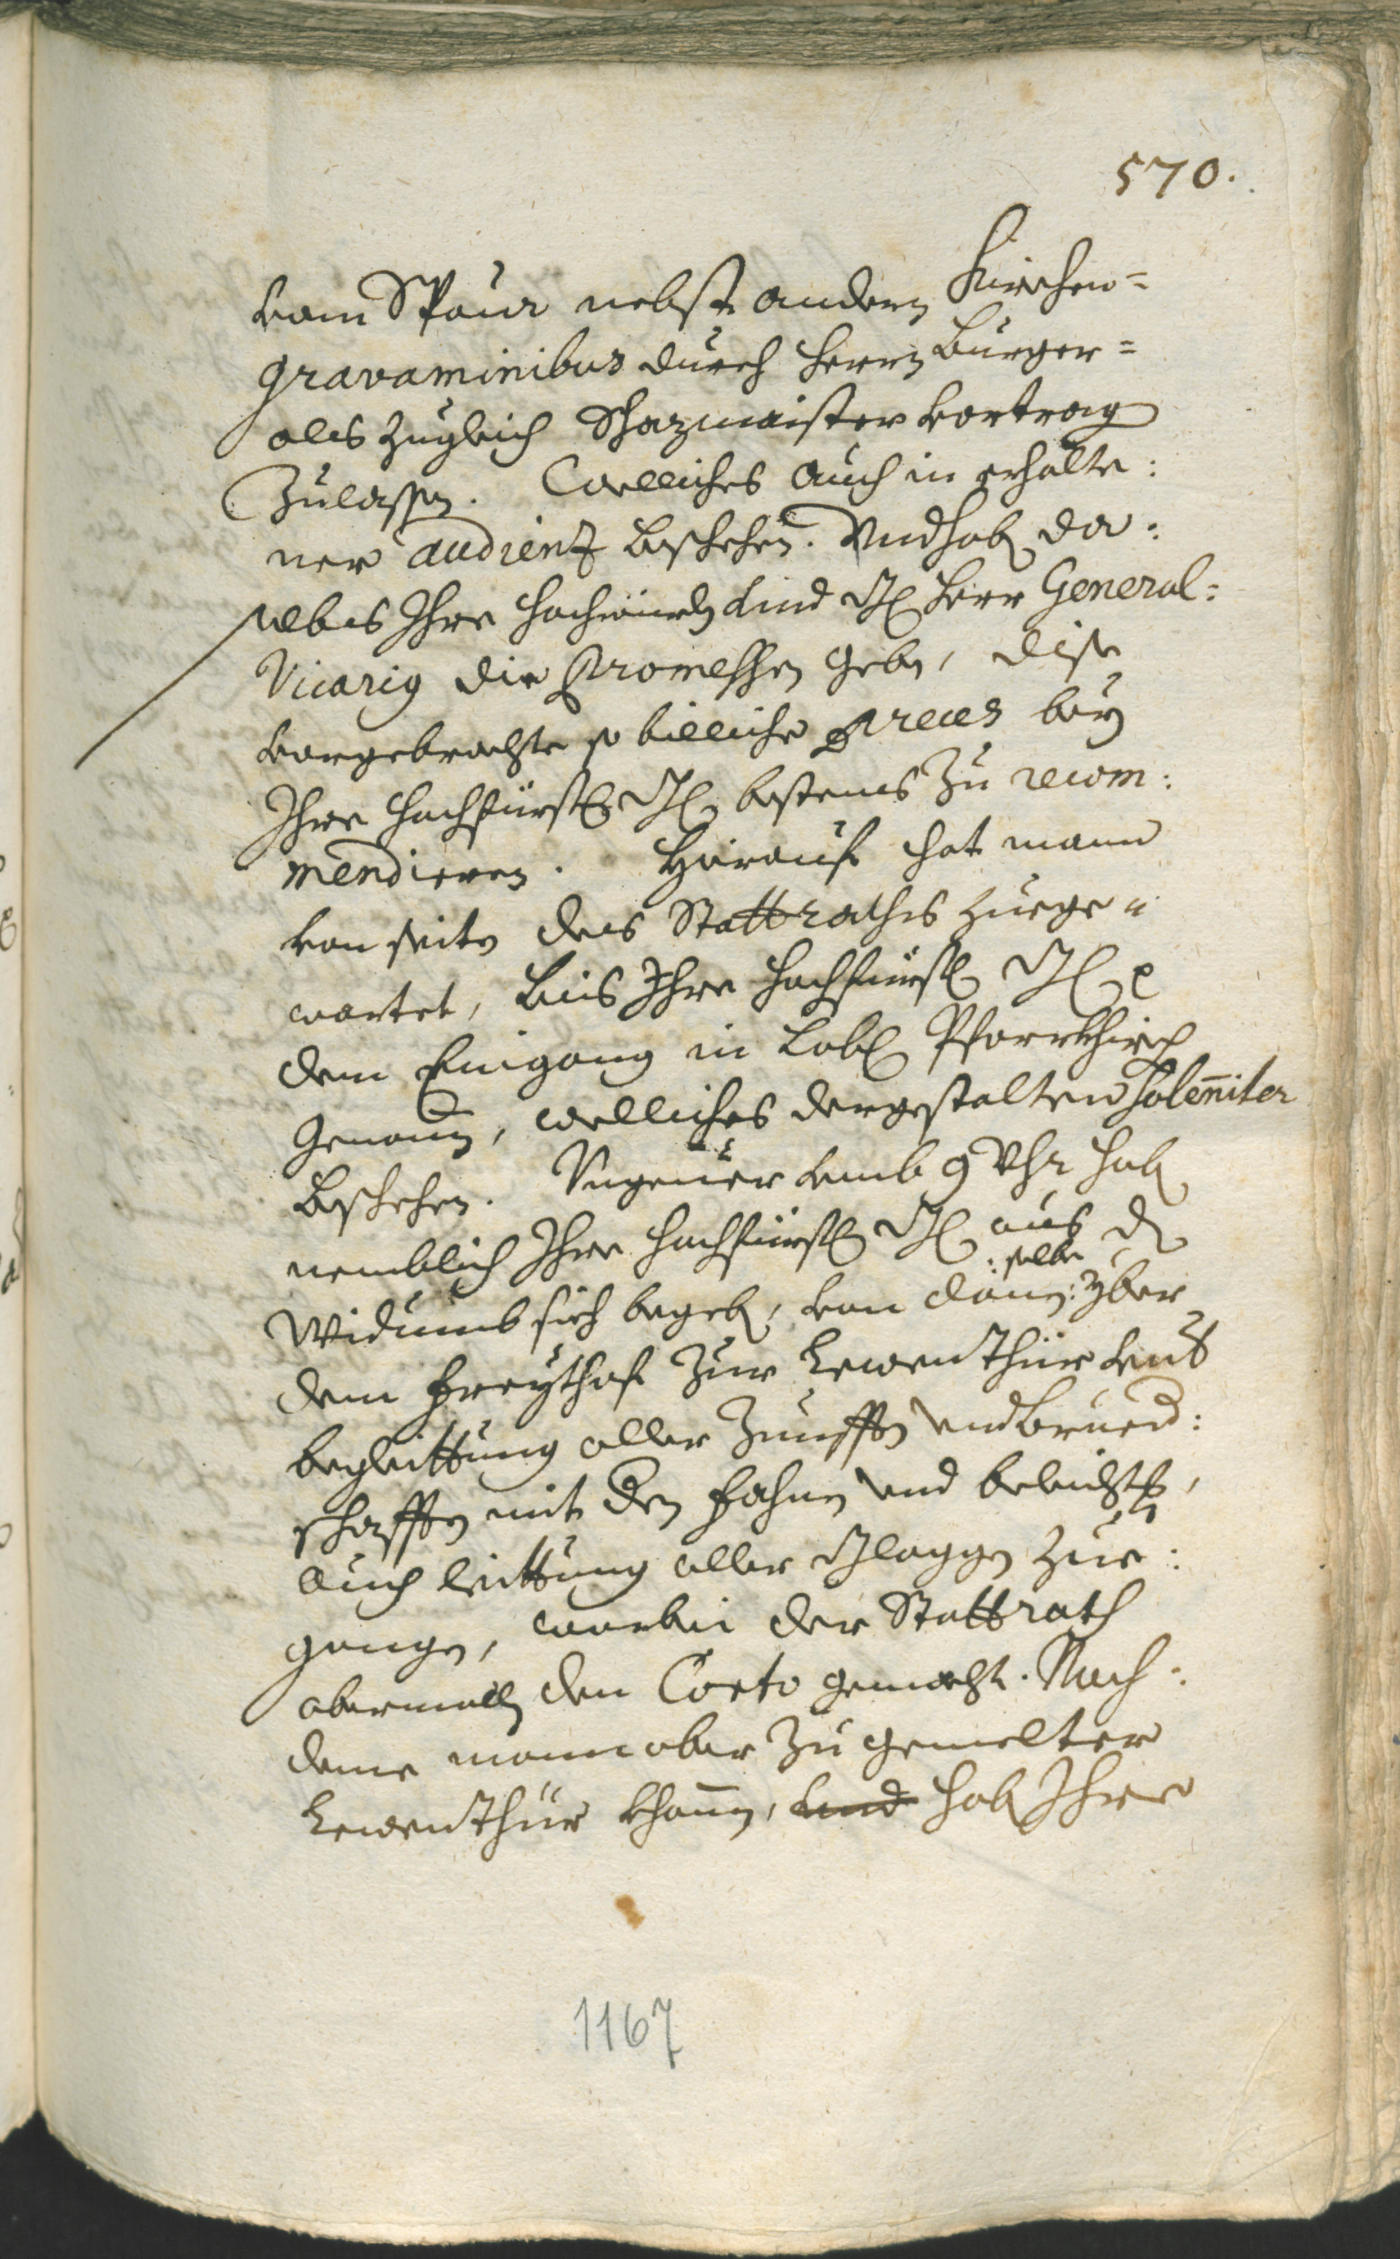 570.
vom Spaur nebst andern Kirchen=
gravaminibus durch Herrn Burger=
als zugleich Schazmaister vortrag
Zulassen. Welliches auch in erhalte:
ner audienz beschehen. Vnd hab da:
selbs Ihre Hochwürdn vnd Gl Herr General=
Vicarig die Promessen geben, dise
vorgebrachte so billiche Preces bey
Ihro Hochfürstl Gl bestens zu recom:
mendieren. Hierauf hat mann
von seite des Stattraths zuege=
wartet, bis Ihre Hochfürstl Gl
den Eingang in Lobl Pfarrkhirch
genomn, welliches dergestalten solenniter
beschehen. Vngeuer vmb 9 Vhr hab
nemblich Ihre Hochfürstl Gl aus d
:selbe
Widumb sich begeb, von danen: yber
dem Freythof zur Lewenthür vnd
begleittung aller Zunfften vnd Brued:
schafften mit den Fahnen vnd beleicht,
auch leittung aller Gloggen zue:
gangen, worbei der Stattrath
abermalln den Corto gemacht. Nach:
deme mann aber zu gemelter
Lewenthür khomn, vnd hab Ihre
1167